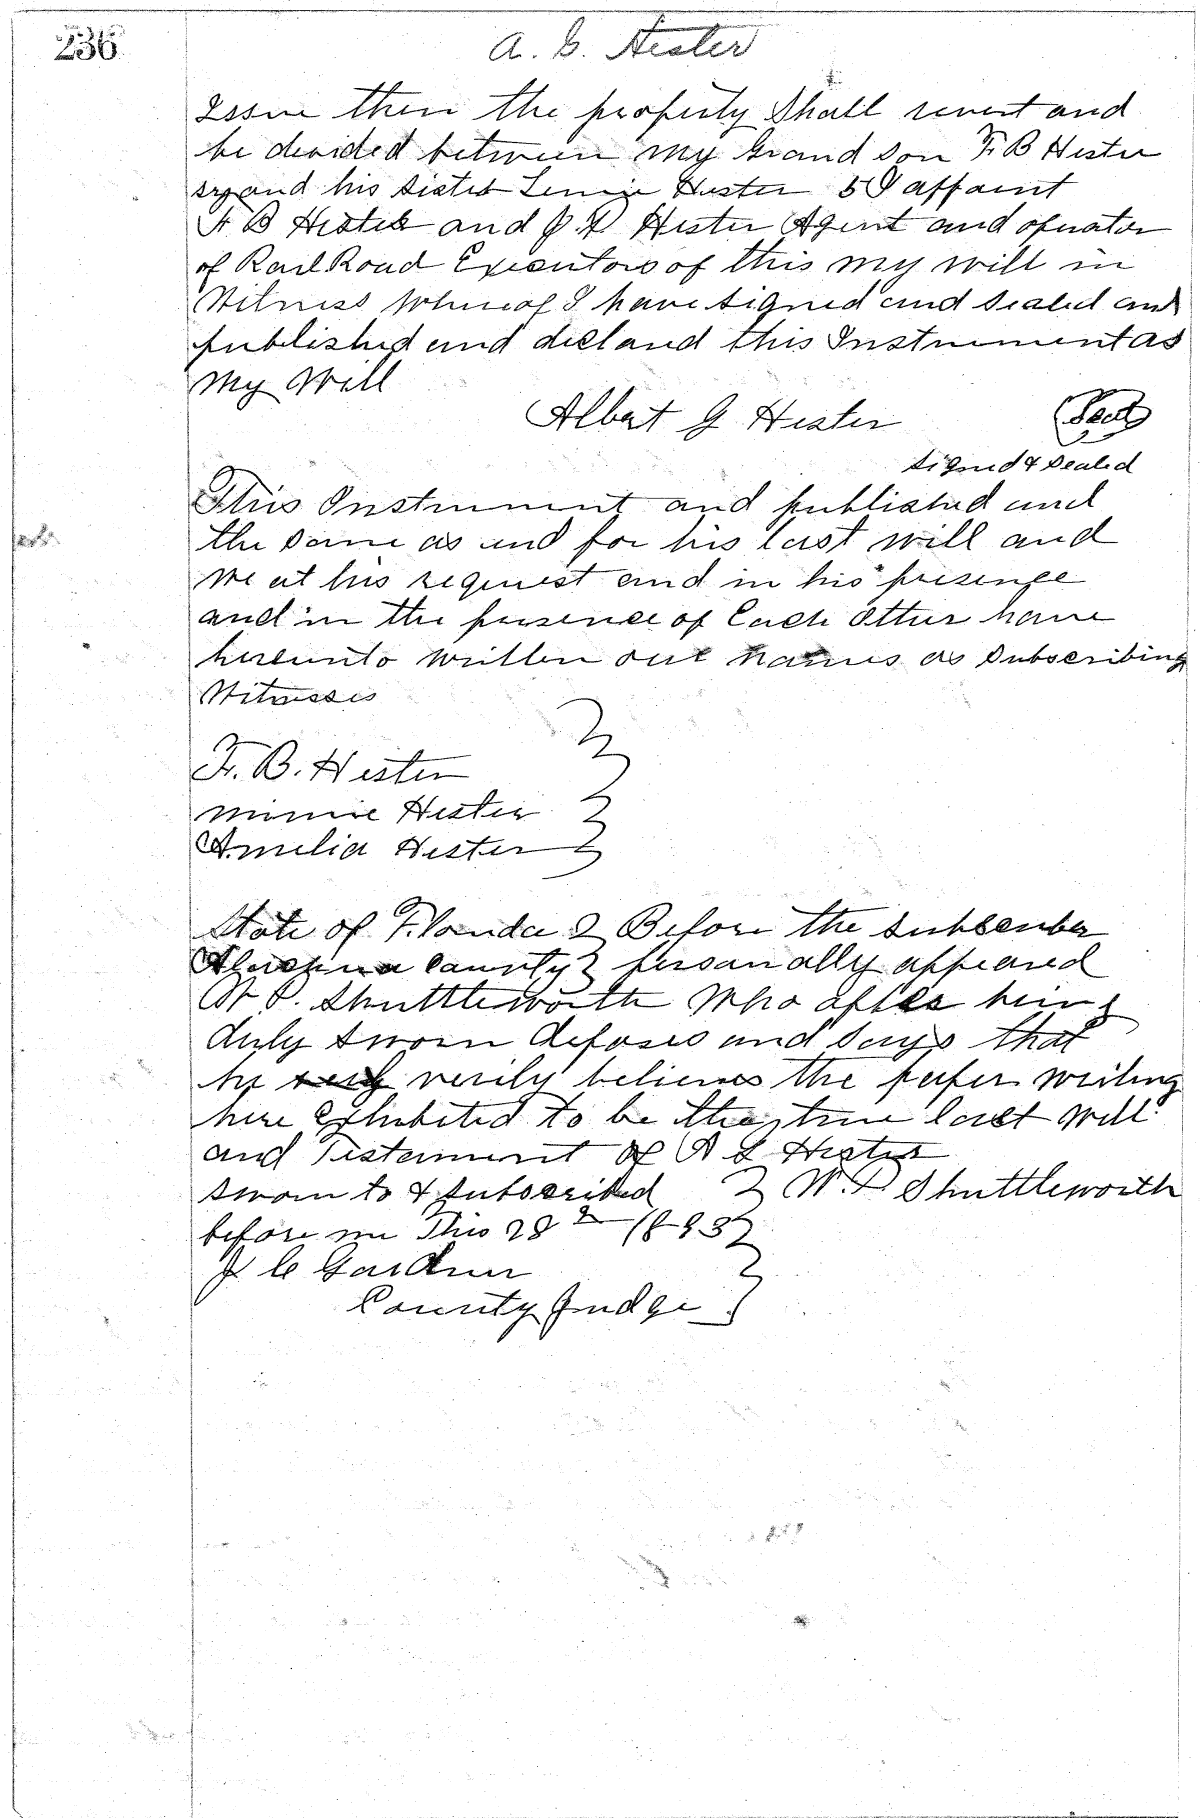 236
A. G. Hester
Issue then the property Shall revert and
be devided between my Grand Son F. B Hester
and his sister Hester 5 I appoint
F B Hester and J. Hester Agent and operator
of Rail Road Executors of this my will in
Witness whereof I have signed and sealed and
published and declared this Instrument as
My Will
Albert G Hester (Seal)
signed & sealed
This Instrument and published and
the same as and for his last will and
we at his request and in his presence
and in the presence of Each Other have
hereunto written our names as Subscribing
Witnesses
F. B. Hester
Minnie Hester
Amelia Hester
State of Florida } Before the subscriber
Alachua County } personally appeared
W P. Shuttleworth Who after being
duly sworn deposes and says that
he verily believes the paper writing
here exhibited to be the true last Will
and Testament of A G Hester
Sworn to & subscribed } W. P Shuttleworth
before me This 28th 1893
J C Gardner
County Judge }